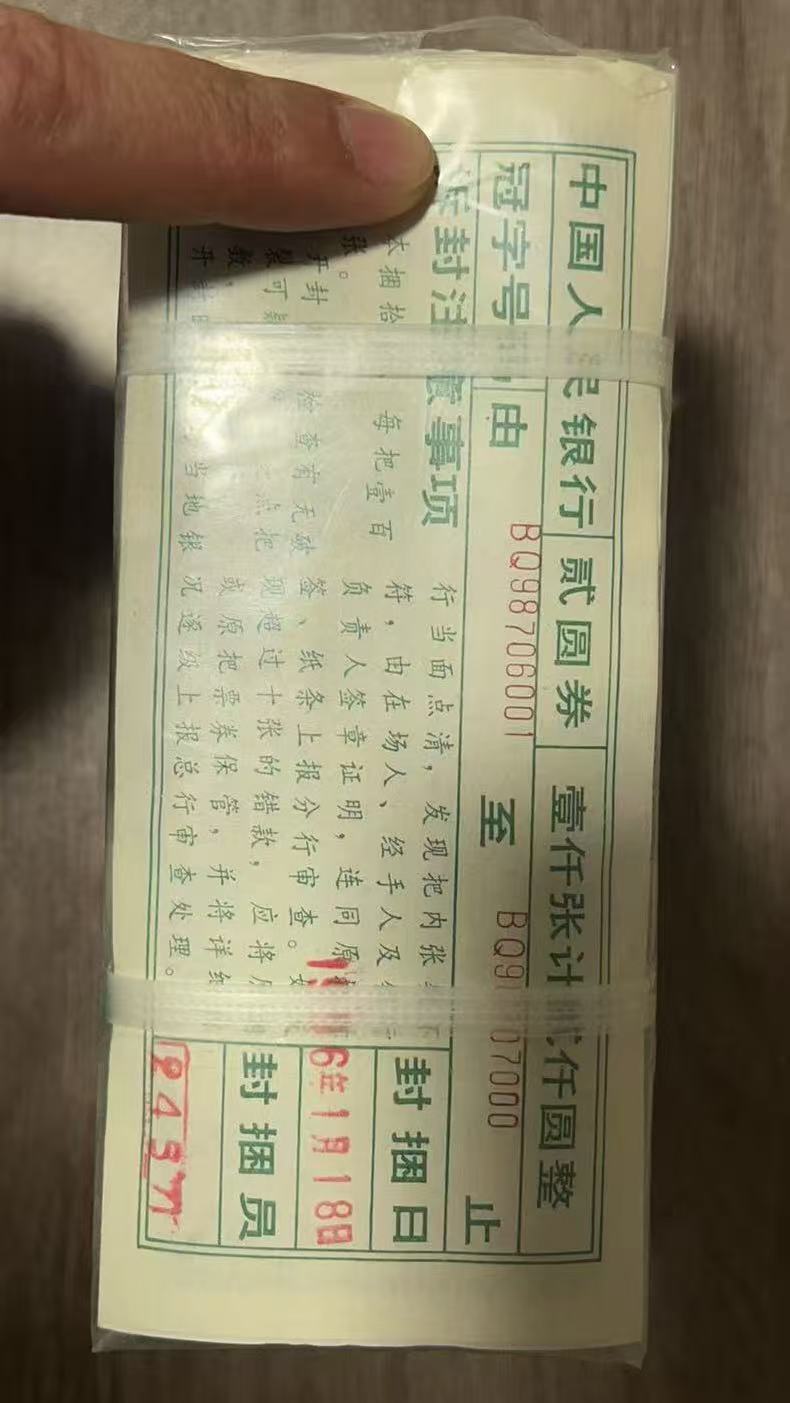 中国人民银行 贰圆券 壹仟张计贰仟圆整
冠字号 由 BQ98706001 至 BQ9 07000 止
封注意事项
本捆拾 每把壹百
张。
开封 检查有无破
裂可 点把
数，
开封 当地银
行当面点清，发现把内张
符，由在场人、经手人及
负责人签章证明，连同原
签、纸条上报分行审查。
现超过十张的错款，应将
或原把票券保管，并将详细
况逐级上报总行审查处理。
封捆日
6年1月18日
封捆员
2457